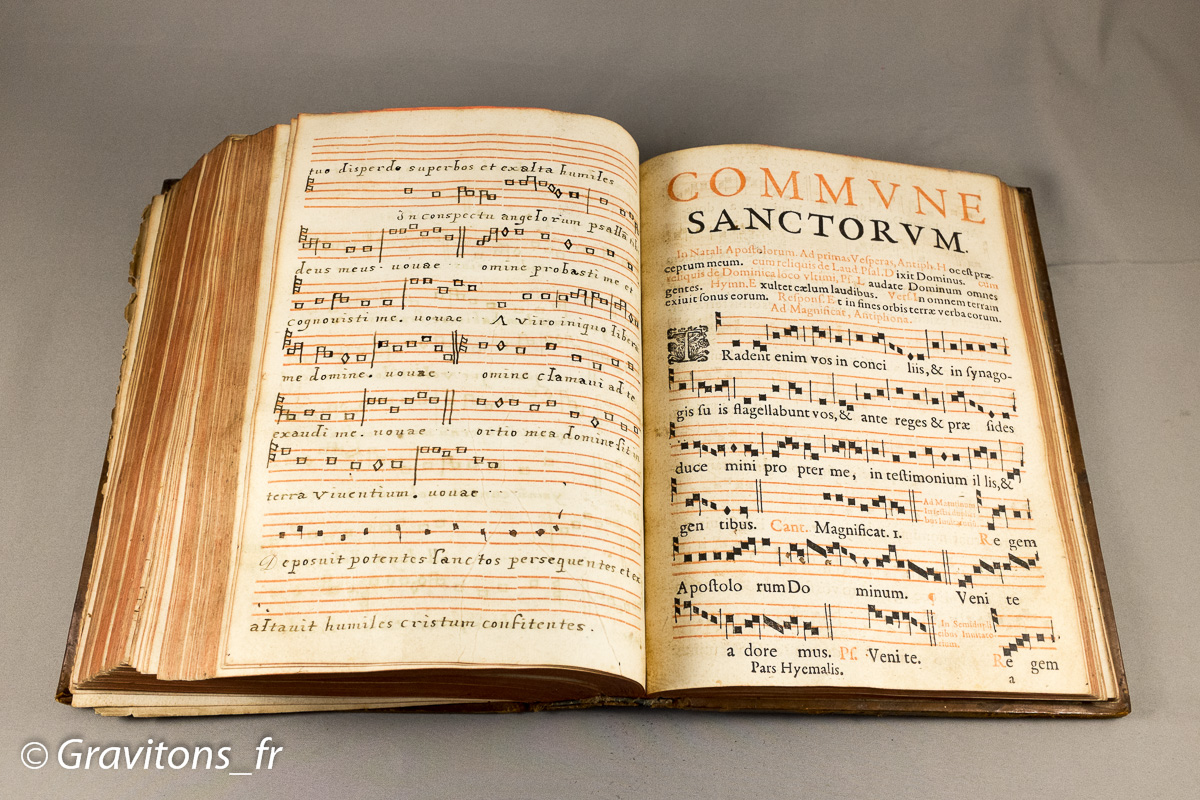 tuo disperde superbos et exalta humiles
In conspectu angelorum psallā
deus meus. uouae omine probasti me et
cognovisti me. uouae A viro iniquo libera
me domine. uouae omine clamaui ad te
exaudi me. uouae ortio mea domine sit in
terra viventium. uouae
Deposuit potentes sanctos persequentes et ex
altavit humiles cristum confitentes.
COMMVNE
SANCTORVM.
In Natali Apostolorum. Ad primas Vesperas, Antiph. H oc est præ-
ceptum meum. cum reliquis de Laud. Psal. D ixit Dominus. cum
reliquis de Dominica loco vltimi, Ps. L audate Dominum omnes
gentes. Hymn. E xultet cælum laudibus. Vers. In omnem terram
exiuit sonus eorum. Respons. E t in fines orbis terræ verba eorum.
Ad Magnificat, Antiphona.
T Radent enim vos in conci liis, & in synago-
gis su is flagellabunt vos, & ante reges & præ sides
duce mini pro pter me, in testimonium il lis, &
gen tibus. Cant. Magnificat. 1. Ad Matutinum Re gem
Apostolo rum Do minum. Veni te
a dore mus. Ps. Veni te. In Semidupli- cibus Inuitato- rium. Re gem
Pars Hyemalis. a
© Gravitons_fr